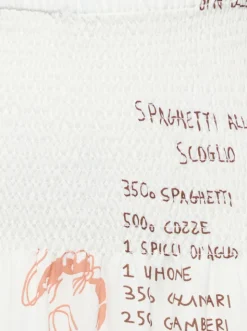 SPAGHETTI ALL
SCOGLIO
350G SPAGHETTI
500G COZZE
1 SPICCI DI'AGLIO
1 LIMONE
356 CALAMARI
256 GAMBERI